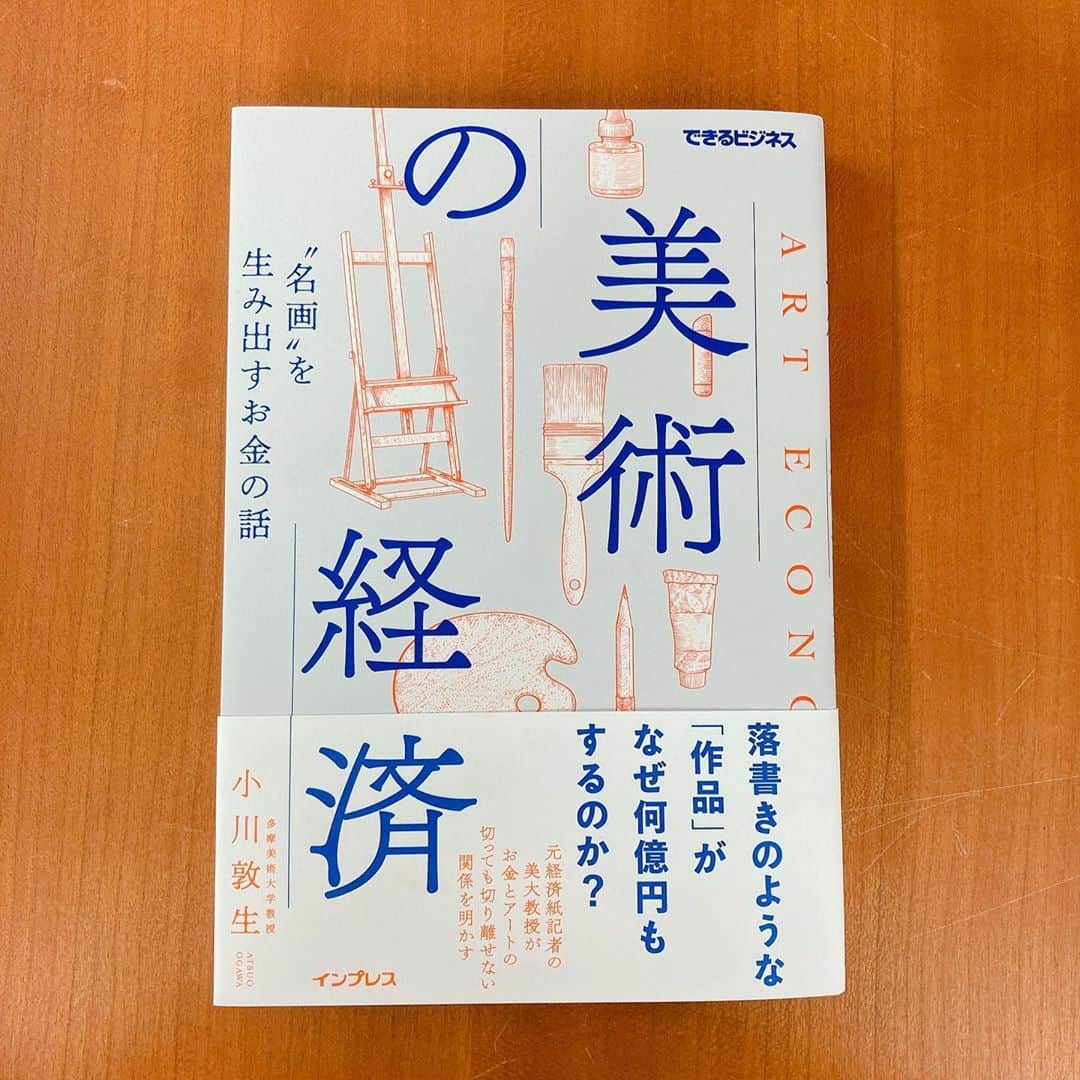 できるビジネス
ART ECONO
美術
の
経済
〝名画〟を
生み出すお金の話
落書きのような
「作品」が
なぜ何億円も
するのか?
元経済紙記者の
美大教授が
お金とアートの
切っても切り離せない
関係を明かす
多摩美術大学教授
小川敦生
ATSUO
OGAWA
インプレス